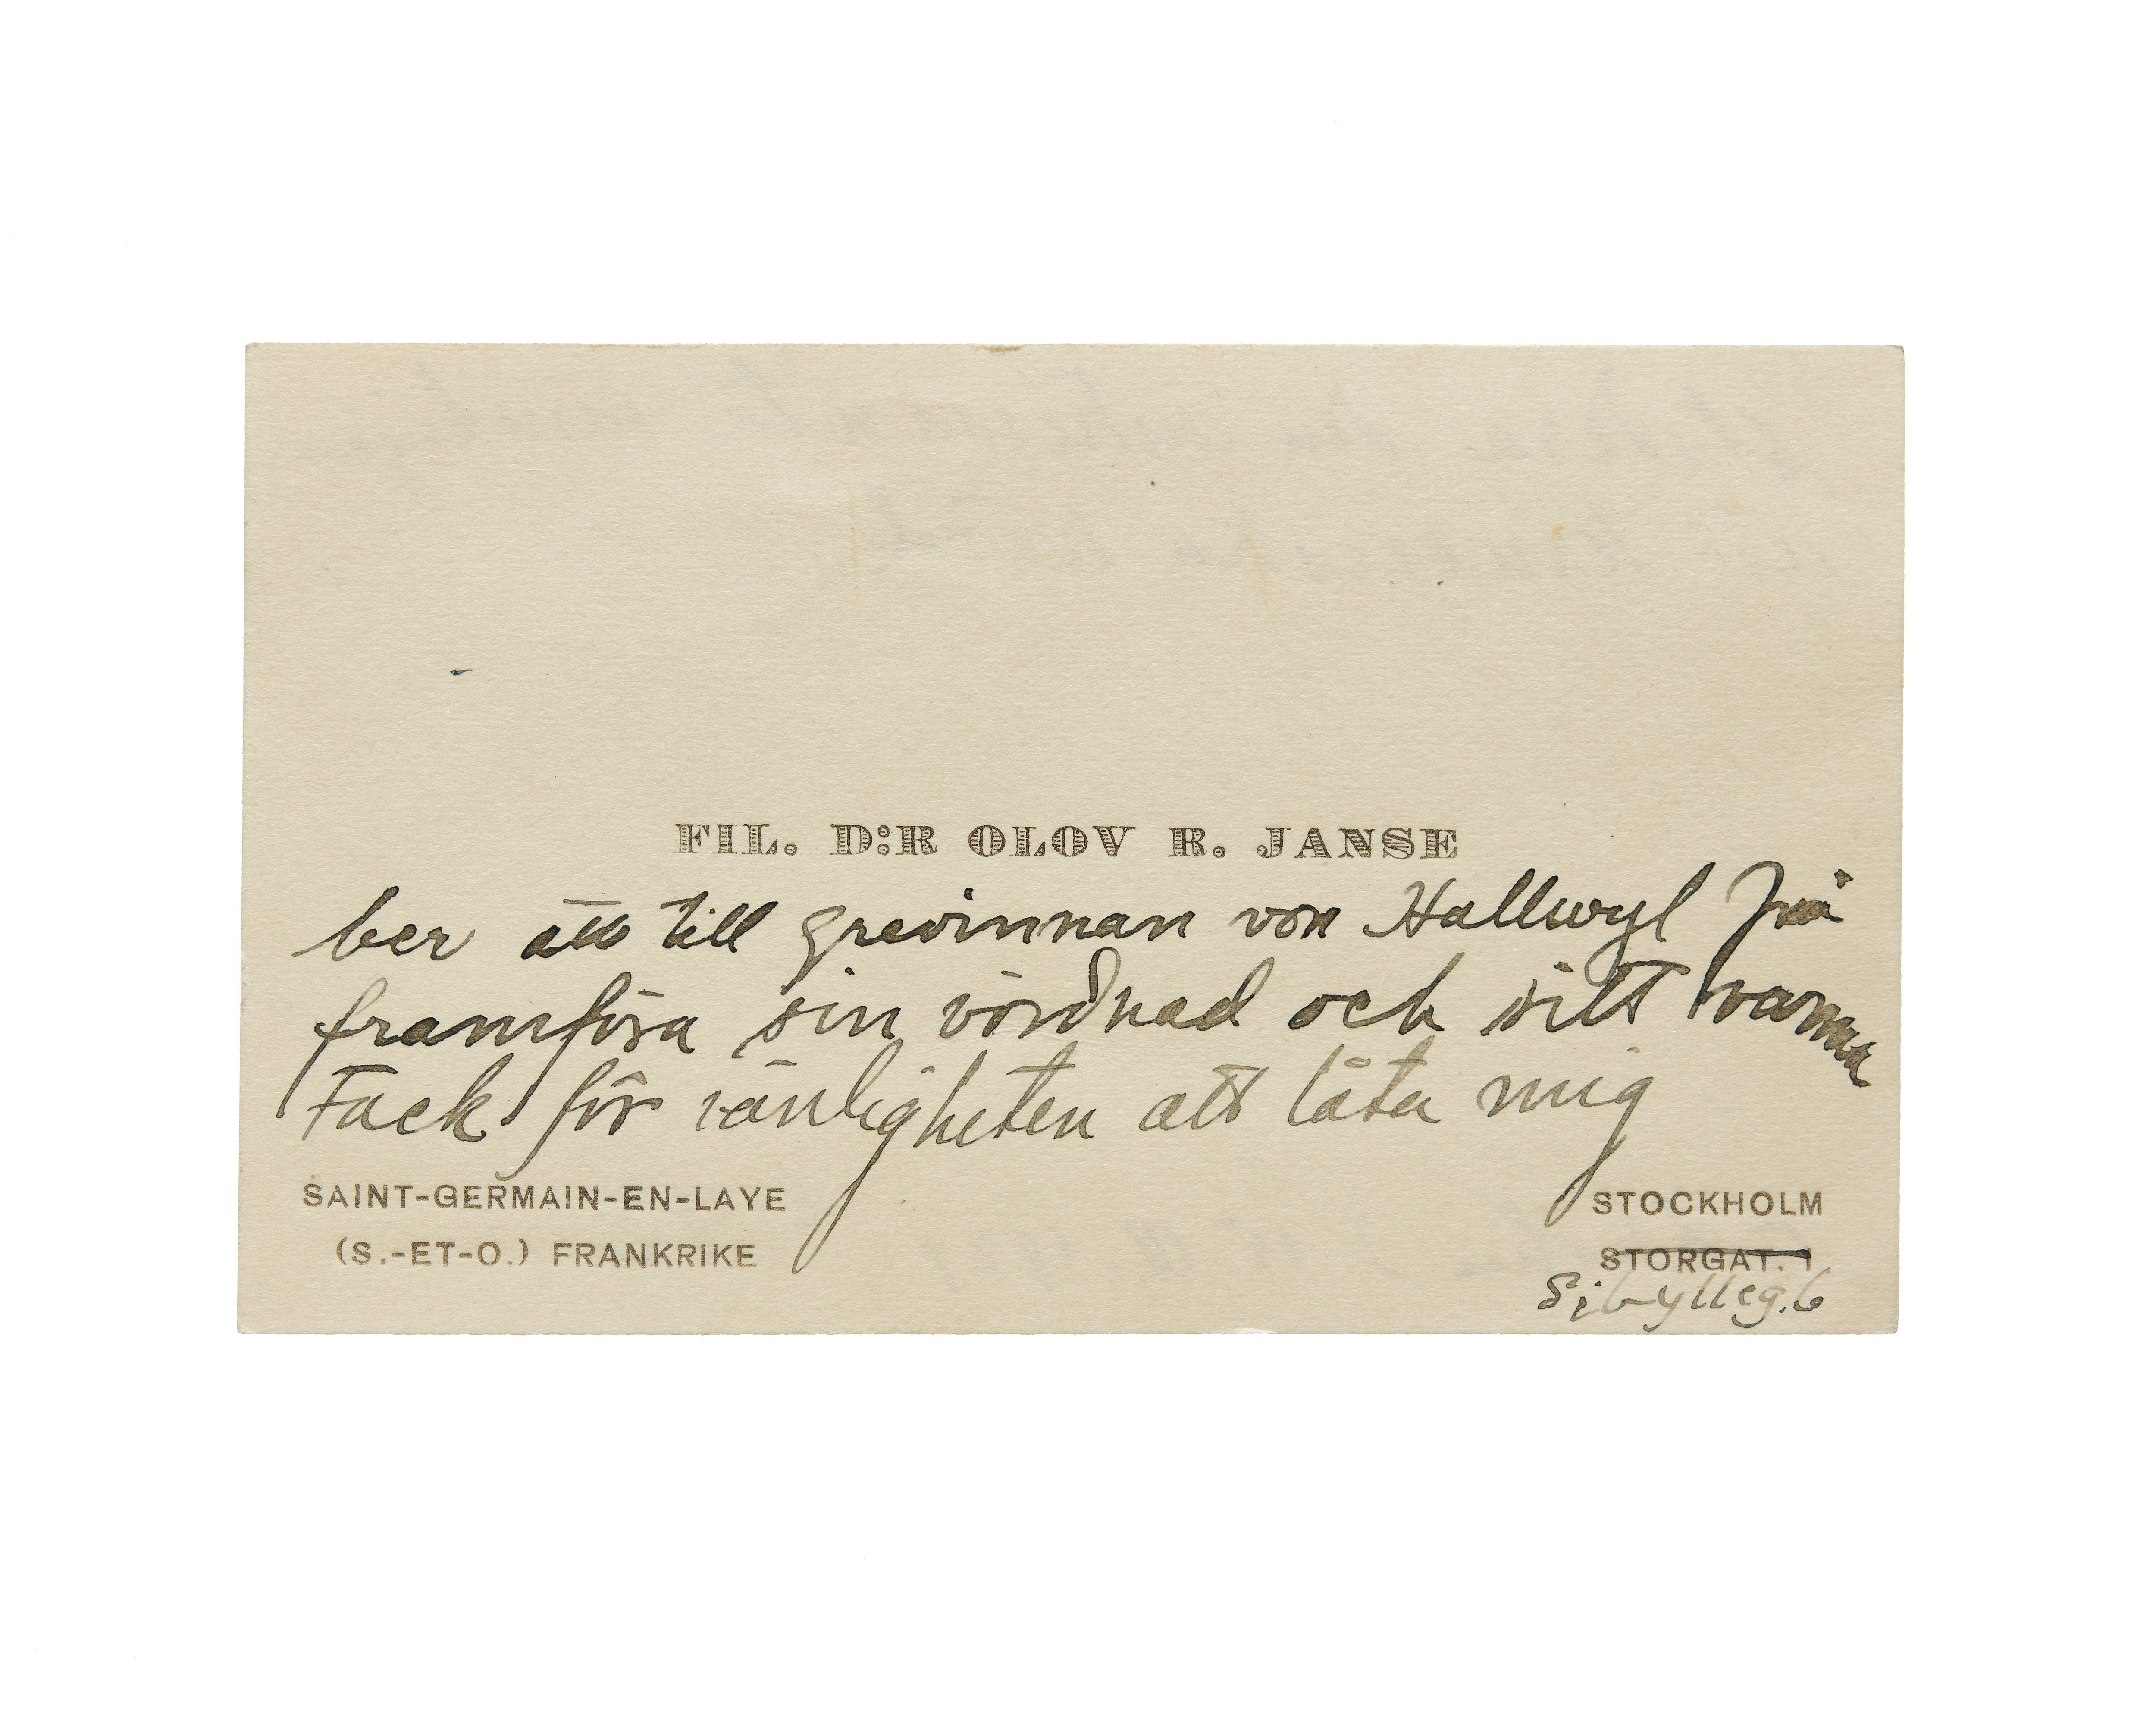 FIL. D:R OLOV R. JANSE
ber att till grevinnan von Hallwyl få
framföra sin vördnad och sitt varma
tack för vänligheten att låta mig
SAINT-GERMAIN-EN-LAYE
(S.-ET-O.) FRANKRIKE
STOCKHOLM
STORGAT. 1
Sibylleg. 6